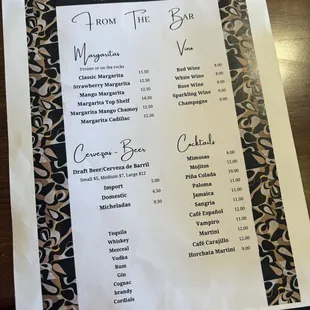 From The Bar
Margaritas
Frozen or on the rocks
Classic Margarita 11.50
Strawberry Margarita 12.50
Mango Margarita 12.50
Margarita Top Shelf 14.50
Margarita Mango Chamoy 13.50
Margarita Cadillac 12.50
Vino
Red Wine 8.00
White Wine 8.00
Rose Wine 8.00
Sparkling Wine 9.00
Champagne 9.00
Cervezas - Beer
Draft Beer/Cerveza de Barril
Small $5, Medium $7, Large $12
Import 5.00
Domestic 4.50
Micheladas 9.50
Tequila
Whiskey
Mezcal
Vodka
Rum
Gin
Cognac
brandy
Cordials
Cocktails
Mimosas
Mojitos
Piña Colada
Paloma
Jamaica
Sangria
Café Español
Vampiro
Martini
Café Carajillo
Horchata Martini